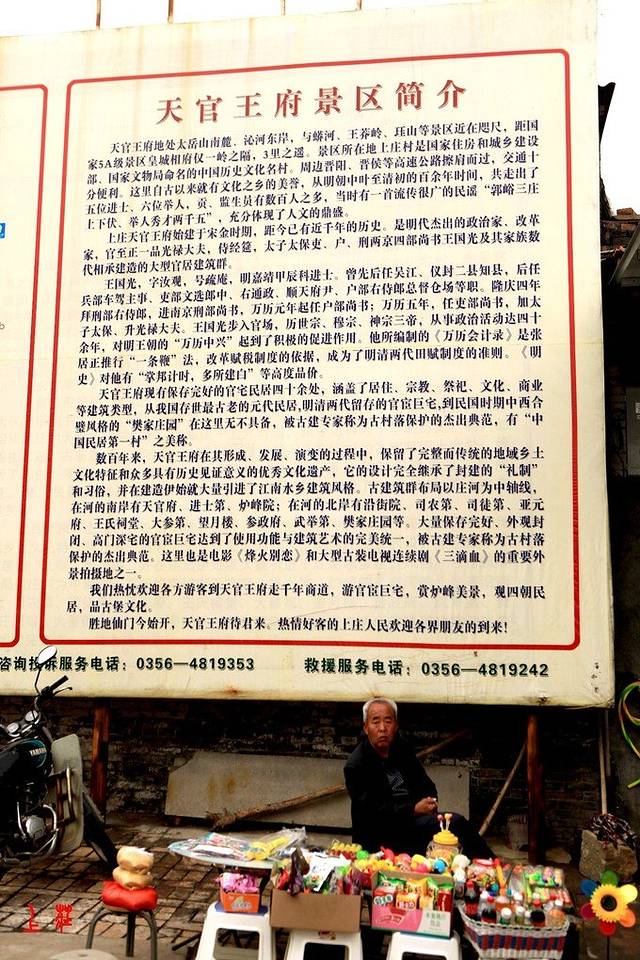 天官王府景区简介
天官王府地处太岳山南麓、沁河东岸，与蟒河、王莽岭、珏山等景区近在咫尺，距国
家5A级景区皇城相府仅一岭之隔，3里之遥。景区所在地上庄村是国家住房和城乡建设
部、国家文物局命名的中国历史文化名村。周边晋阳、晋侯等高速公路擦肩而过，交通十
分便利。这里自古以来就有文化之乡的美誉，从明朝中叶至清初的百余年时间，共走出了
五位进士、六位举人，贡、监生员有数百人之多，当时有一首流传很广的民谣“郭峪三庄
上下伏、举人秀才两千五”，充分体现了人文的鼎盛。
上庄天官王府始建于宋金时期，距今已有近千年的历史。是明代杰出的政治家、改革
家，官至正一品光禄大夫，侍经筵，太子太保吏、户、刑两京四部尚书王国光及其家族数
代相承建造的大型官居建筑群。
王国光，字汝观，号疏庵，明嘉靖甲辰科进士。曾先后任吴江、仪封二县知县，后任
兵部车驾主事、吏部文选郎中、右通政、顺天府尹、户部右侍郎总督仓场等职。隆庆四年
拜刑部右侍郎，进南京刑部尚书，万历元年起任户部尚书；万历五年，任吏部尚书，加太
子太保、升光禄大夫。王国光步入官场，历世宗、穆宗、神宗三帝，从事政治活动达四十
余年，对明王朝的“万历中兴”起到了积极的促进作用。他所编制的《万历会计录》是张
居正推行“一条鞭”法，改革赋税制度的依据，成为了明清两代田赋制度的准则。《明
史》对他有“掌邦计时，多所建白”等高度品价。
天官王府现有保存完好的官宅民居四十余处，涵盖了居住、宗教、祭祀、文化、商业
等建筑类型，从我国存世最古老的元代民居,明清两代留存的官宦巨宅,到民国时期中西合
璧风格的“樊家庄园”在这里无不具备，被古建专家称为古村落保护的杰出典范，有“中
国民居第一村”之美称。
数百年来，天官王府在其形成、发展、演变的过程中，保留了完整而传统的地域乡土
文化特征和众多具有历史见证意义的优秀文化遗产，它的设计完全继承了封建的“礼制”
和习俗，并在建造伊始就大量引进了江南水乡建筑风格。古建筑群布局以庄河为中轴线，
在河的南岸有天官府、进士第、炉峰院；在河的北岸有沿街院、司农第、司徒第、亚元
府、王氏祠堂、大参第、望月楼、参政府、武举第、樊家庄园等。大量保存完好、外观封
闭、高门深宅的官宦巨宅达到了使用功能与建筑艺术的完美统一，被古建专家称为古村落
保护的杰出典范。这里也是电影《烽火别恋》和大型古装电视连续剧《三滴血》的重要外
景拍摄地之一。
我们热忱欢迎各方游客到天官王府走千年商道，游官宦巨宅，赏炉峰美景，观四朝民
居，品古堡文化。
胜地仙门今始开，天官王府待君来。热情好客的上庄人民欢迎各界朋友的到来！
咨询投诉服务电话：0356—4819353 救援服务电话：0356—4819242
YAMAHA